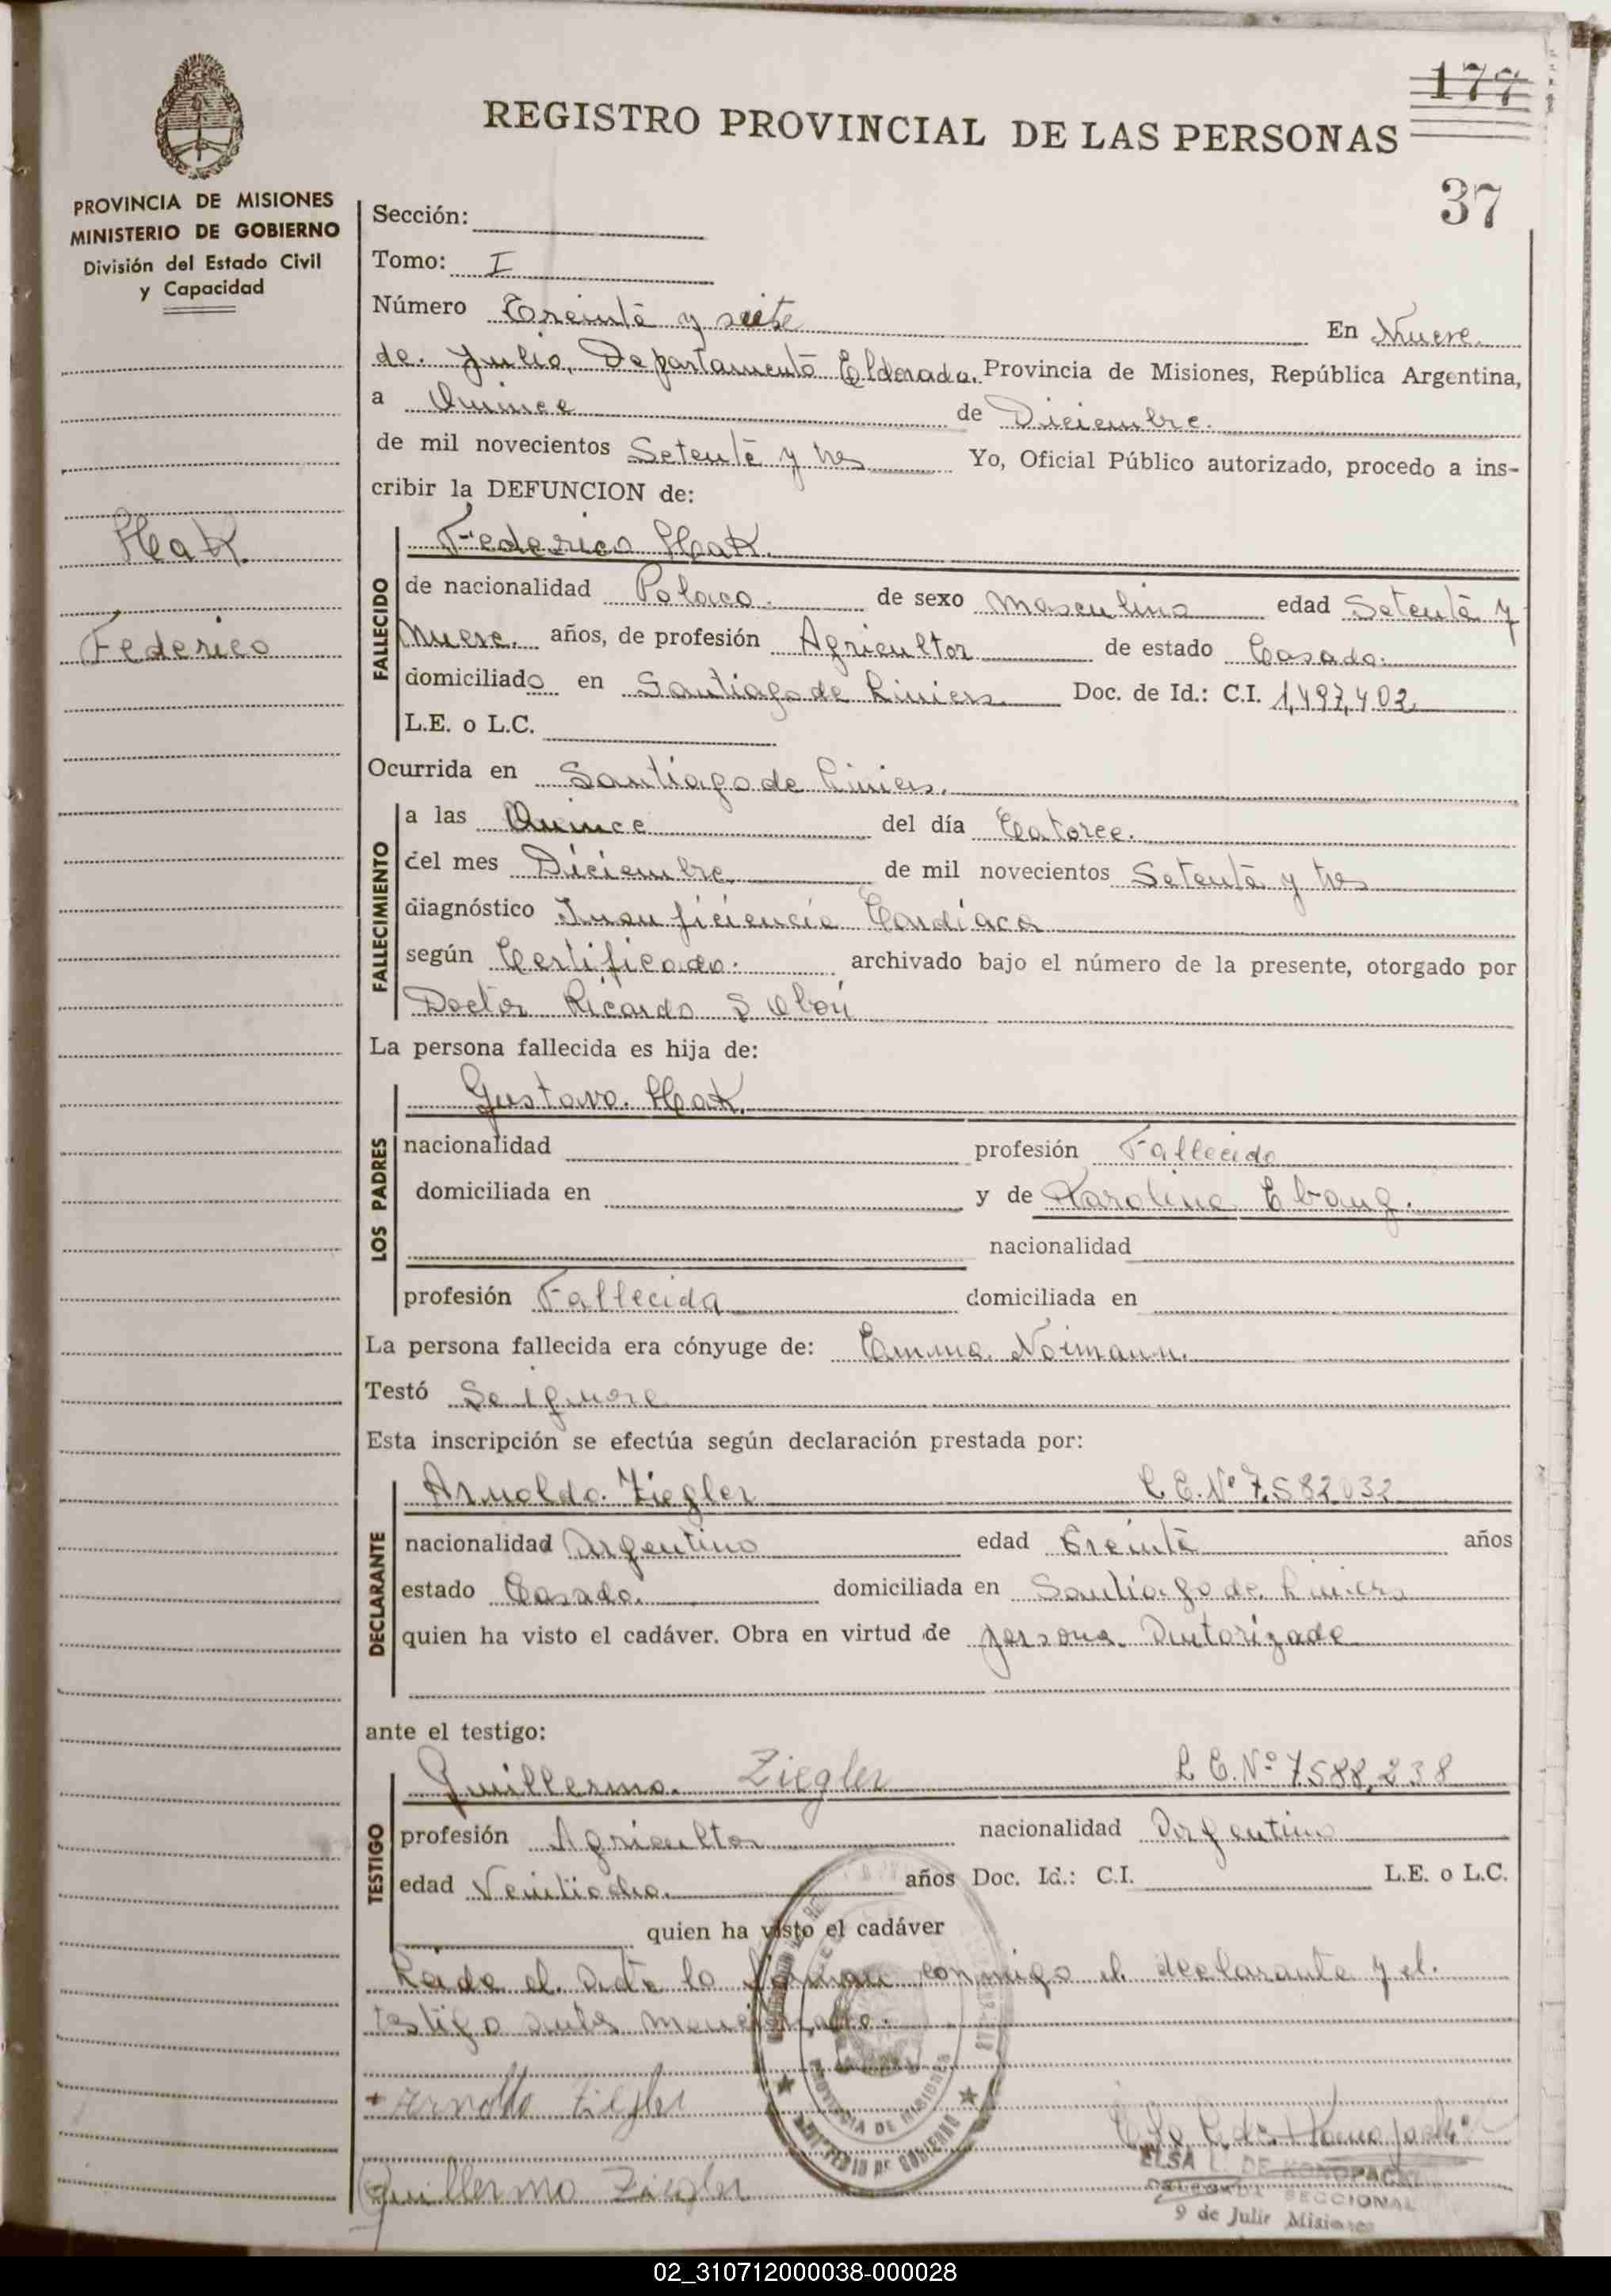 177
REGISTRO PROVINCIAL DE LAS PERSONAS
37
PROVINCIA DE MISIONES
MINISTERIO DE GOBIERNO
División del Estado Civil
y Capacidad
Hak
Federico
Sección:
Tomo: I
Número Treinta y siete En Nueve
de Julio, Departamento Eldorado, Provincia de Misiones, República Argentina,
a Quince de Diciembre.
de mil novecientos Setenta y tres Yo, Oficial Público autorizado, procedo a ins-
cribir la DEFUNCION de:
FALLECIDO
Federico Hak.
de nacionalidad Polaco. de sexo masculino edad Setenta y
Nueve. años, de profesión Agricultor de estado Casado.
domiciliado en Santiago de Liniers. Doc. de Id.: C.I. 1,497,402
L.E. o L.C.
Ocurrida en Santiago de Liniers.
FALLECIMIENTO
a las Quince del día Catorce.
del mes Diciembre de mil novecientos Setenta y tres
diagnóstico Insuficiencia Cardíaca
según Certificado. archivado bajo el número de la presente, otorgado por
Doctor Ricardo S
La persona fallecida es hija de:
LOS PADRES
Gustavo Hak.
nacionalidad profesión Fallecido
domiciliada en y de Karolina Ebang.
nacionalidad
profesión Fallecida domiciliada en
La persona fallecida era cónyuge de: Emma Noimann.
Testó Se ignora
Esta inscripción se efectúa según declaración prestada por:
DECLARANTE
Arnoldo Ziegler L.E. Nº 7.582.032
nacionalidad Argentino edad Treinta años
estado Casado. domiciliada en Santiago de Liniers
quien ha visto el cadáver. Obra en virtud de persona Autorizada
ante el testigo:
TESTIGO
Guillermo. Ziegler L.E. Nº 7588,238
profesión Agricultor nacionalidad Argentino
edad Veintiocho. años Doc. Id.: C.I. L.E. o L.C.
quien ha visto el cadáver
Leída el acta la firman conmigo el declarante y el.
testigo antes mencionado.
PROVINCIA DE MISIONES
MINISTERIO DE GOBIERNO
Arnoldo Ziegler
Guillermo Ziegler
ELSA L. DE KONOPACKI
DELEGADA SECCIONAL
9 de Julio Misiones
02_310712000038-000028